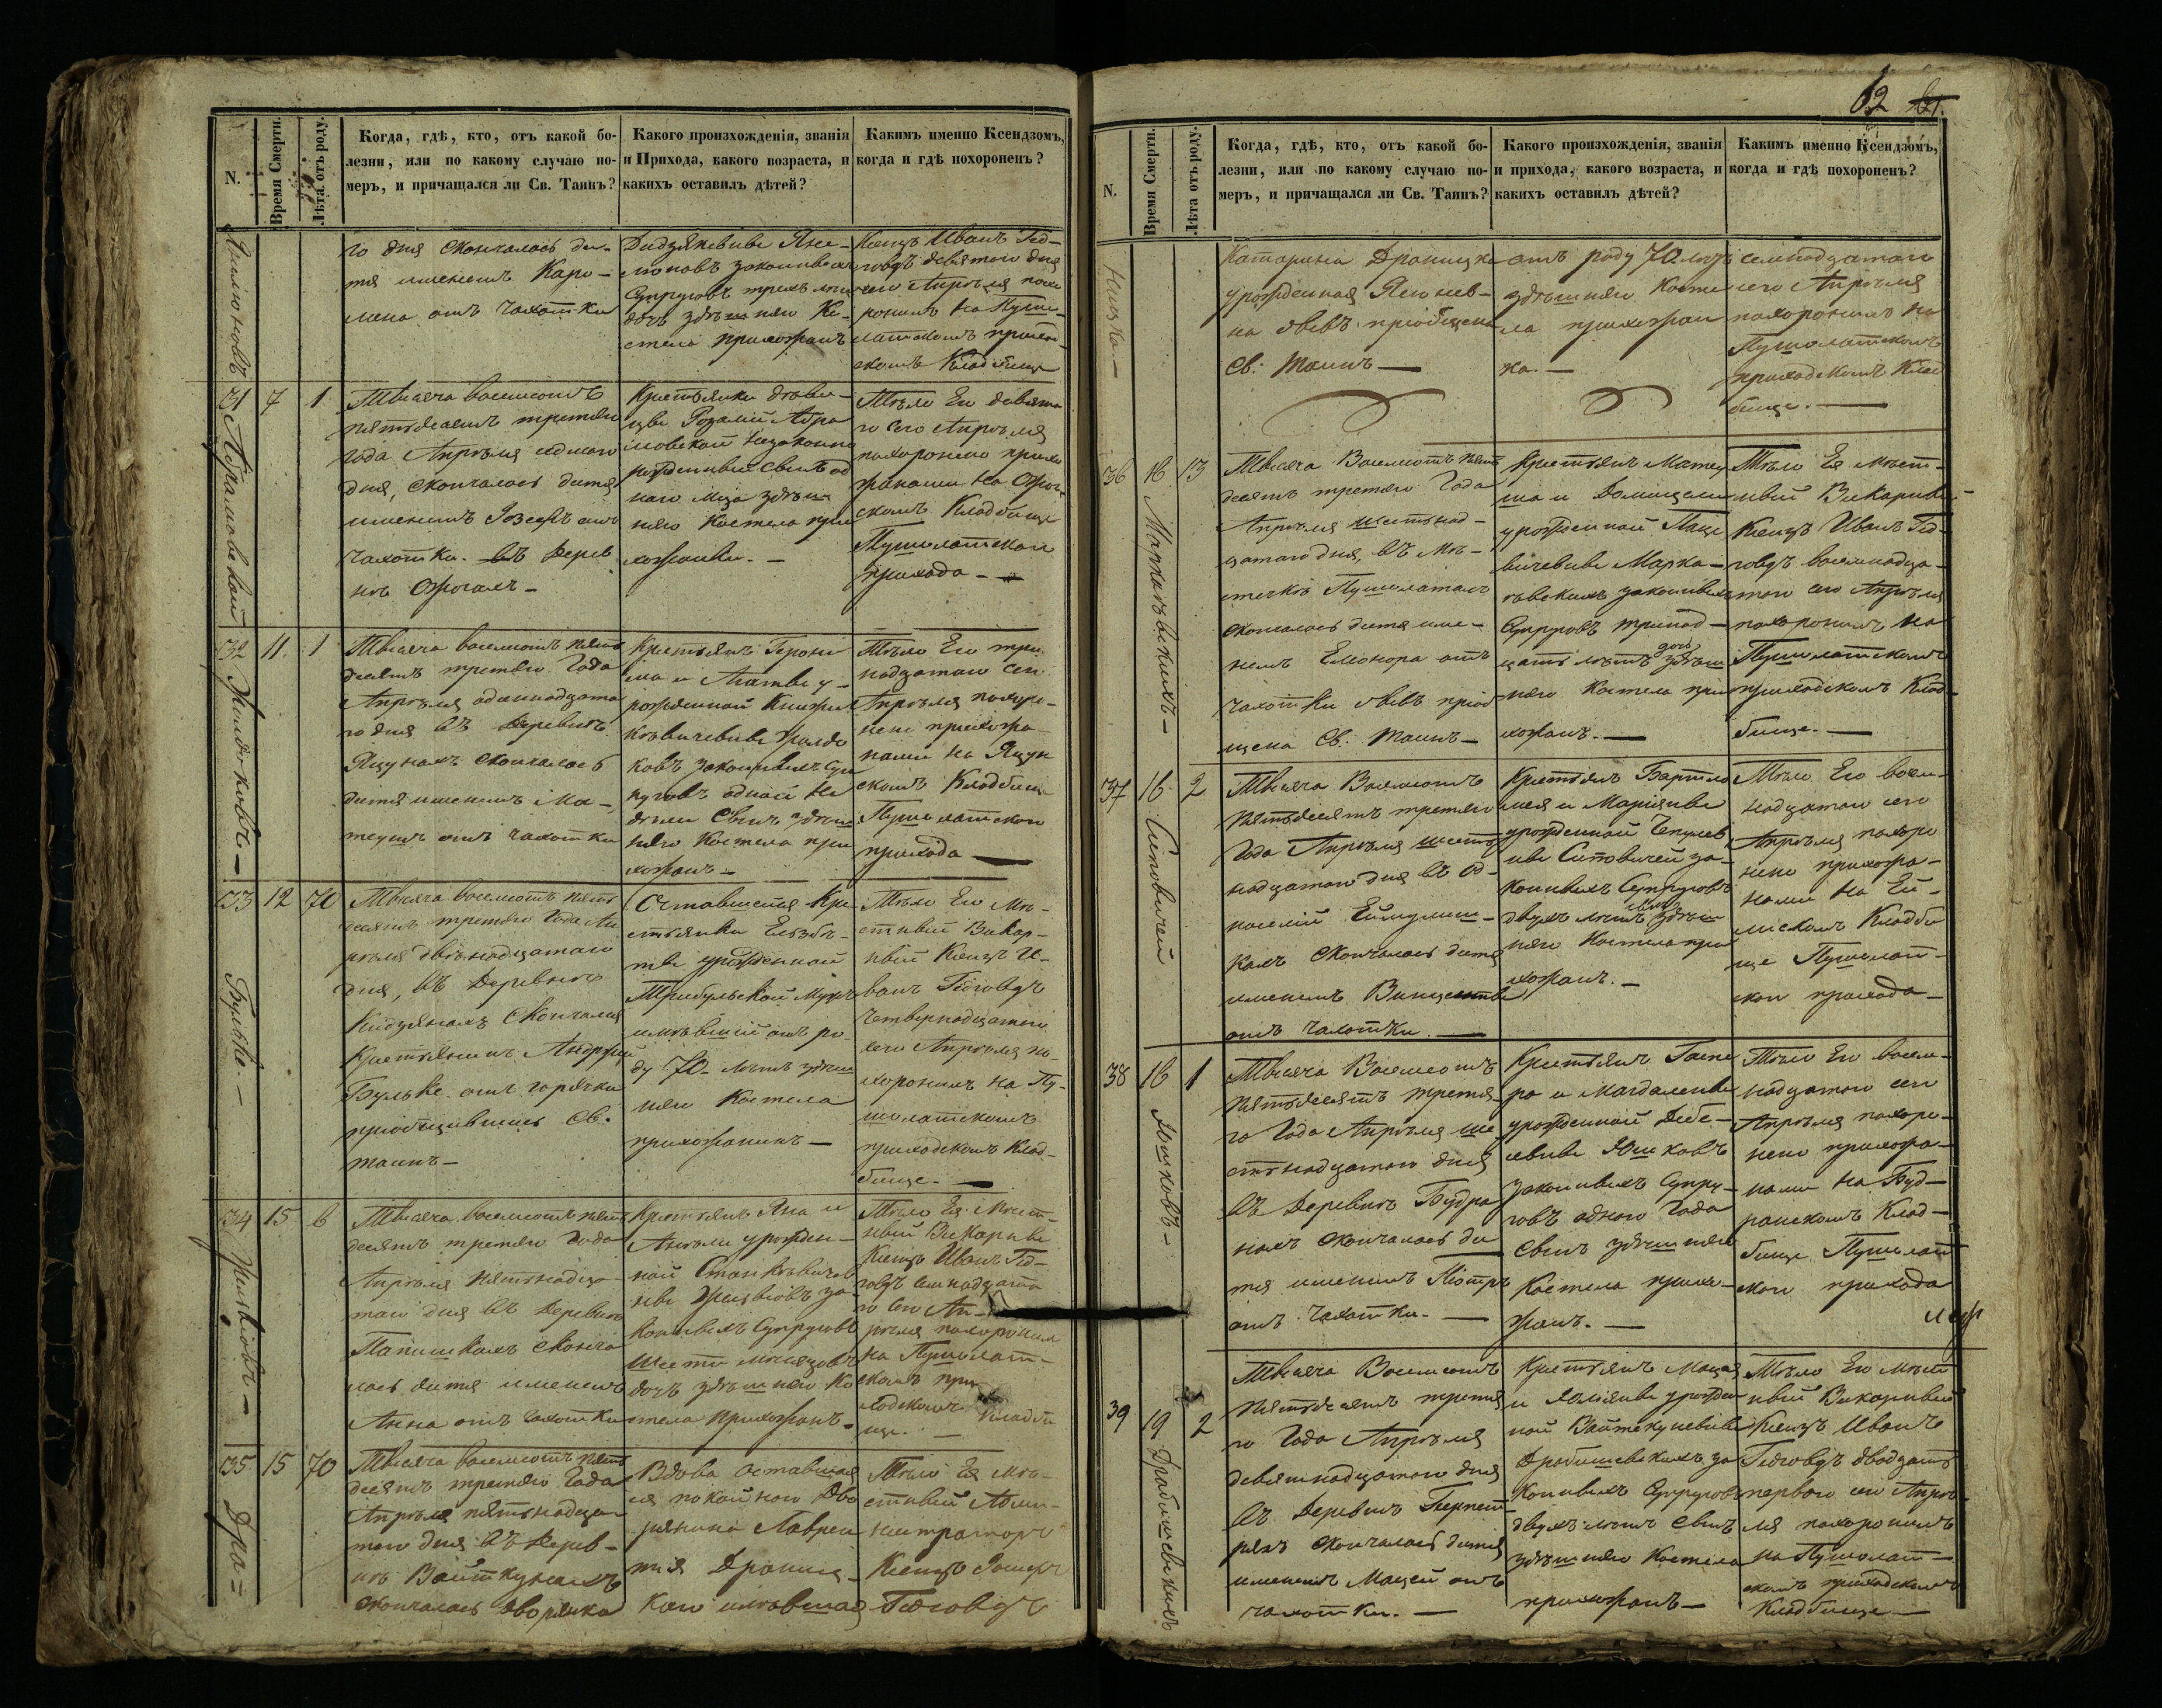 N.
Время Смерти.
Лѣта отъ роду.
Когда, гдѣ, кто, отъ какой бо-
лезни, или по какому случаю по-
меръ, и причащался ли Св. Таинъ?
Какого произхожденія, званія
и Прихода, какого возраста, и
какихъ оставилъ дѣтей?
Какимъ именно Ксендзомъ,
когда и гдѣ похороненъ?
го дня скончалось ди-
тя именемъ Каро-
лина отъ чахотки
законныхъ
Супруговъ трехъ
дочь здѣшняго Ко-
стела прихожанъ
Ксендзъ Иванъ Гед-
говдъ девятого дня
сего Апрѣля похо
ронилъ на Пуше-
латскомъ приход-
скомъ Кладбище
31 7 1
Абрамовской
Тысяча восемсотъ
пятдесятъ третяго
года Апрѣля седмого
дня, скончалось дитя
именемъ Іозефъ отъ
чахотки. въ дерев
нѣ Ожогахъ -
Крестьянки дѣви-
цы Розаліи Абра
мовской незаконно
рожденный сынъ од
ного мца здѣш
няго Костела при
хожанки. -
Тѣло Его девята
го сего Апрѣля
похоронено прихо
жанами на Ожог-
скомъ Кладбище
Пушолатскаго
прихода -
32 11 1
Тысяча восемсотъ пять
десятъ третьяго Года
Апрѣля одинадцата
го дня въ деревнѣ
Яцунахъ скончалось
дитя именемъ Ма-
теушъ отъ чахотки
Крестьянъ Герони
ма и Агаты у-
рожденной
законныхъ Суп
руговъ одной не
дѣли сынъ здѣш
няго Костела при
хожанъ -
Тѣло Его три
надцатаго сего
Апрѣля похоро-
нено прихожа-
нами на Яцун
скомъ Кладбище
Пушолатскаго
прихода
33 12 70
Бульве -
Тысяча восемсотъ пять
десятъ третяго Года Ап
рѣля двѣнадцатаго
дня, въ Деревнѣ
Кидзянахъ скончался
Крестьянинъ Андржей
Бульве отъ горячки
пріобщившись Св.
таинъ -
Оставшегося Кре
стьянки Елзбѣ-
ты урожденной
Трибульской Мужъ
имѣвшій отъ ро-
ду 70 лѣтъ здѣш
няго Костела
прихожанинъ -
Тѣло Его Мѣ-
стный Викар-
ный Ксендзъ И-
ванъ Гедговдъ
четвернадцатого
сего Апрѣля по-
хоронилъ на Пу-
шолатскомъ
приходскомъ Клад-
бище. -
34 15 6
Тысяча восемсотъ пять
десятъ третяго Года
Апрѣля пятнадца-
таго дня въ Деревнѣ
Папишкахъ сконча
лась дитя именемъ
Анна отъ чахотки
Крестьянъ Яна и
Анѣли урожден-
ной
за-
конныхъ Супруговъ
шести мѣсяцовъ
дочь здѣшняго Ко
стела прихожанъ -
Тѣло Ея Мѣст-
ный Викарный
Ксендзъ Иванъ Гед-
говдъ семнадцата
го сего Ап-
рѣля похоронилъ
на Пушолат-
скомъ при-
ходскомъ Кладби
ще. -
35 15 70
Дра=
Тысяча восемсотъ пять
десятъ третяго Года
Апрѣля пятнадца
таго дня въ Дерев-
нѣ Войткунахъ
скончалась дворянка
Вдова оставшая
ся покойного Дво
рянина Лаврен
тія Драниц-
кого имѣвшая
Тѣло Ея Мѣ-
стный Адми-
нистраторъ
Ксендзъ Іосифъ
Гедговдъ
62
61.
N.
Время Смерти.
Лѣта отъ роду.
Когда, гдѣ, кто, отъ какой бо-
лезни, или по какому случаю по-
меръ, и причащался ли Св. Таинъ?
Какого произхожденія, званія
и прихода, какого возраста, и
какихъ оставилъ дѣтей?
Какимъ именно Ксендзомъ,
когда и гдѣ похороненъ?
ницка -
Катарина Драницка
урожденная
пріобщена
Св. Таинъ -
отъ роду 70 лѣтъ
здѣшняго Косте
ла прихожан
ка. -
семнадцатаго
сего Апрѣля
похоронилъ на
Пушолатскомъ
приходскомъ Клад
бище. -
36 16 13
Тысяча Восемсотъ пять
десятъ третяго Года
Апрѣля шестнад-
цатаго дня, въ Мѣ-
стечкѣ Пушолатахъ
скончалась дитя име-
немъ Елеонора отъ
чахотки пріоб
щена Св. Таинъ -
Крестьянъ Матеу
ша и Доминцели
урожденной
законныхъ
Супруговъ тринад-
цать лѣтъ дочь здѣш
няго Костела при
хожанъ. -
Тѣло Ея Мѣст-
ный Викарный
Ксендзъ Иванъ Гед-
говдъ восемнадца-
того сего Апрѣля
похоронилъ на
Пушолатскомъ
приходскомъ Клад-
бище. -
37 16 2
Ситовичей
Тысяча Восемсотъ
пятьдесятъ третяго
Года Апрѣля шест
надцатого дня въ Од-
носелій
скончалось дитя
именемъ Винценты
отъ чахотки. -
Крестьянъ Бартло
мея и Маріянны
урожденной
Ситовичей за-
конныхъ Супруговъ
двухъ лѣтъ сынъ здѣш
няго Костела при
хожанъ. -
Тѣло Его восем-
надцатого сего
Апрѣля похоро
нено прихожа-
нами на
Кладби
ще Пушолат-
ского прихода -
38 16 1
Юшковъ -
Тысяча Восемсотъ
пятьдесятъ третя-
го Года Апрѣля ше
стнадцатого дня
въ Деревнѣ Будра
нахъ скончалось ди
тя именемъ Піотръ
отъ чахотки. -
Крестьянъ Гаспе
ра и Магдалены
урожденной
Юшковъ
законныхъ Супру-
говъ одного Года
сынъ здѣшняго
Костела прихо-
жанъ. -
Тѣло Его восем-
надцатого сего
Апрѣля похоро-
нено прихожа-
нами на Буд-
ранскомъ Клад-
бище Пушолат
ского прихода
39 19 2
Дробишевскихъ
Тысяча Восемсотъ
пятьдесятъ третя
го Года Апрѣля
девятнадцатого дня
въ Деревнѣ
скончалось дитя
именемъ Мацей отъ
чахотки. -
Крестьянъ Мацея
и урожден
ной
Дробишевскихъ за
конныхъ Супруговъ
двухъ лѣтъ сынъ
здѣшняго Костела
прихожанъ -
Тѣло Его Мѣст
ный Викарный
Ксендзъ Иванъ
Гедговдъ двадцать
первого сего Апрѣ-
ля похоронилъ
на Пушолат-
скомъ приходскомъ
Кладбище -